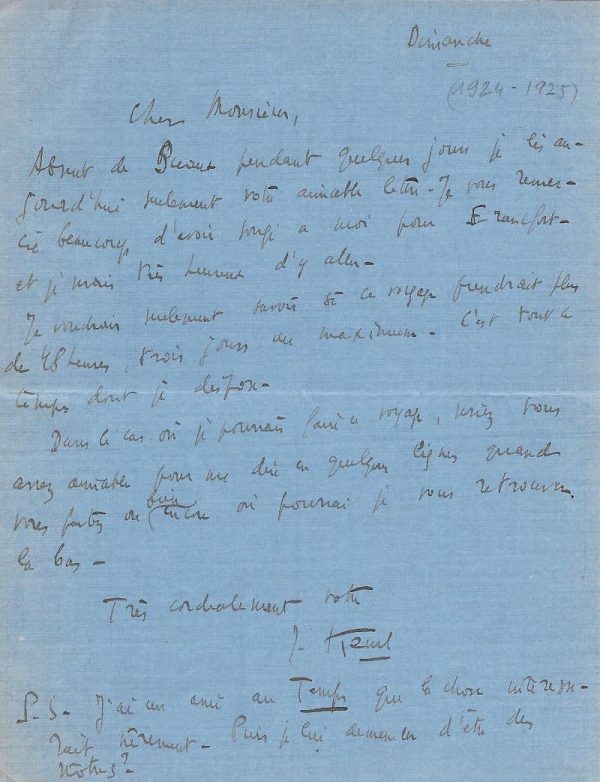 Dimanche
(1924-1925)
Cher Monsieur,
Absent de pendant quelques jours je lis au-
jourd'hui seulement votre aimable lettre - Je vous remer-
cie beaucoup d'avoir songé a moi pour Francfort -
et je serais très heureux d'y aller -
Je voudrais seulement savoir si ce voyage prendrait plus
de 48 heures, trois jours au maximum - C'est tout le
temps dont je dispose -
Dans le cas où je pourrais faire ce voyage, seriez vous
assez aimable pour me dire en quelques lignes quand
vous partez ou bien encore où pourrai je vous retrouver
la bas -
Très cordialement votre
J.
P.S. - J'ai un ami au Temps que la chose intéresse-
rait - Puis je lui demander d'être des
nôtres?